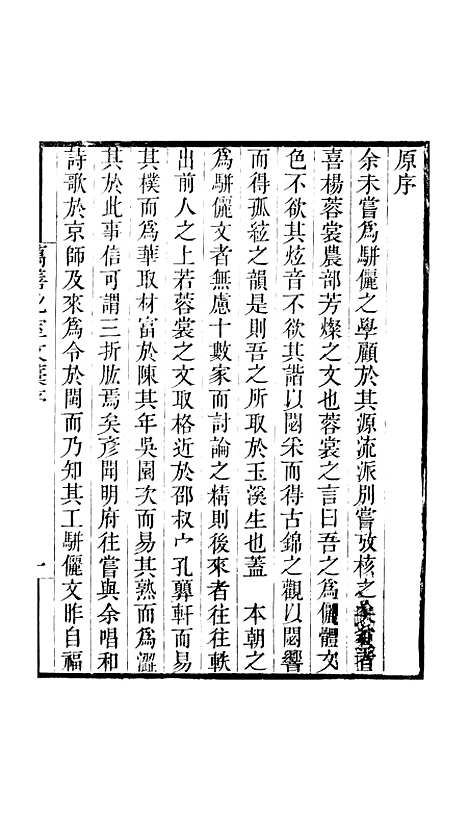 原序
余未嘗爲駢儷之學顧於其源流派別嘗攷核之
喜楊蓉裳農部芳燦之文也蓉裳之言曰吾之爲儷體文
色不欲其炫音不欲其諧以閟采而得古錦之觀以閟響
而得孤絃之韻是則吾之所取於玉溪生也蓋　本朝之
爲駢儷文者無慮十數家而討論之精則後來者往往軼
出前人之上若蓉裳之文取格近於邵叔宀孔顨軒而易
其樸而爲華取材富於陳其年吳園次而易其熟而爲澀
其於此事信可謂三折肱焉矣彦聞明府往嘗與余唱和
詩歌於京師及來爲令於閩而乃知其工駢儷文昨自福
萬善花室文藁序
一